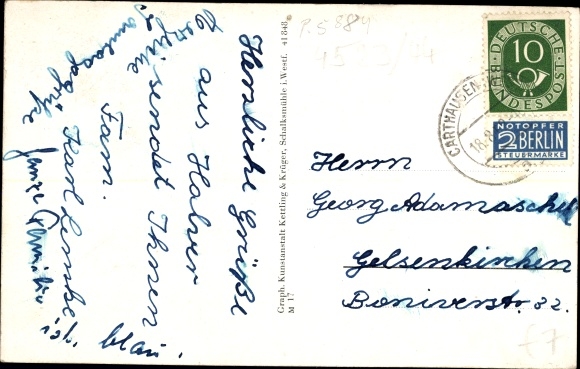 Herzliche Grüße
aus Halver
sendet Ihnen
Fam.
Karl Lemke
ganze Familie
ist blau.
Graph. Kunstanstalt Kettling & Krüger, Schalksmühle i. Westf. 41848
M 17
P.S 884
DEUTSCHE BUNDESPOST
10
NOTOPFER
2 BERLIN
STEUERMARKE
CARTHAUSEN
18.8
Herrn
Georg Adamaschek
Gelsenkirchen
Boniverstr. 32.
£7